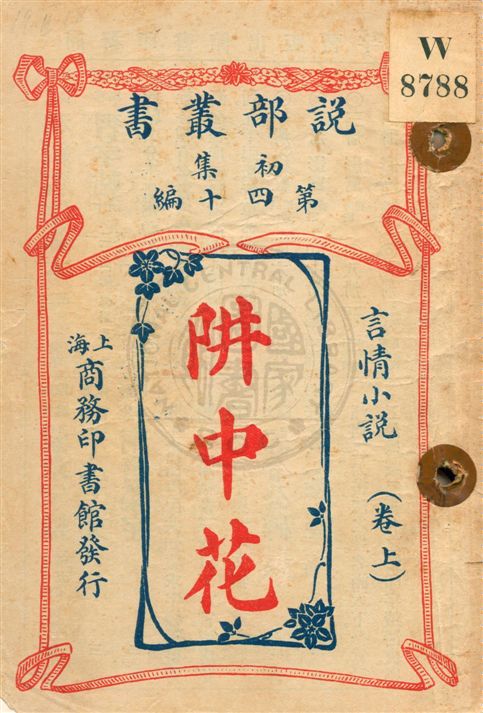 W
8788
說部叢書
初集
第四十編
言情小說
（卷上）
阱中花
上海
商務印書館發行
CENTRAL
國家